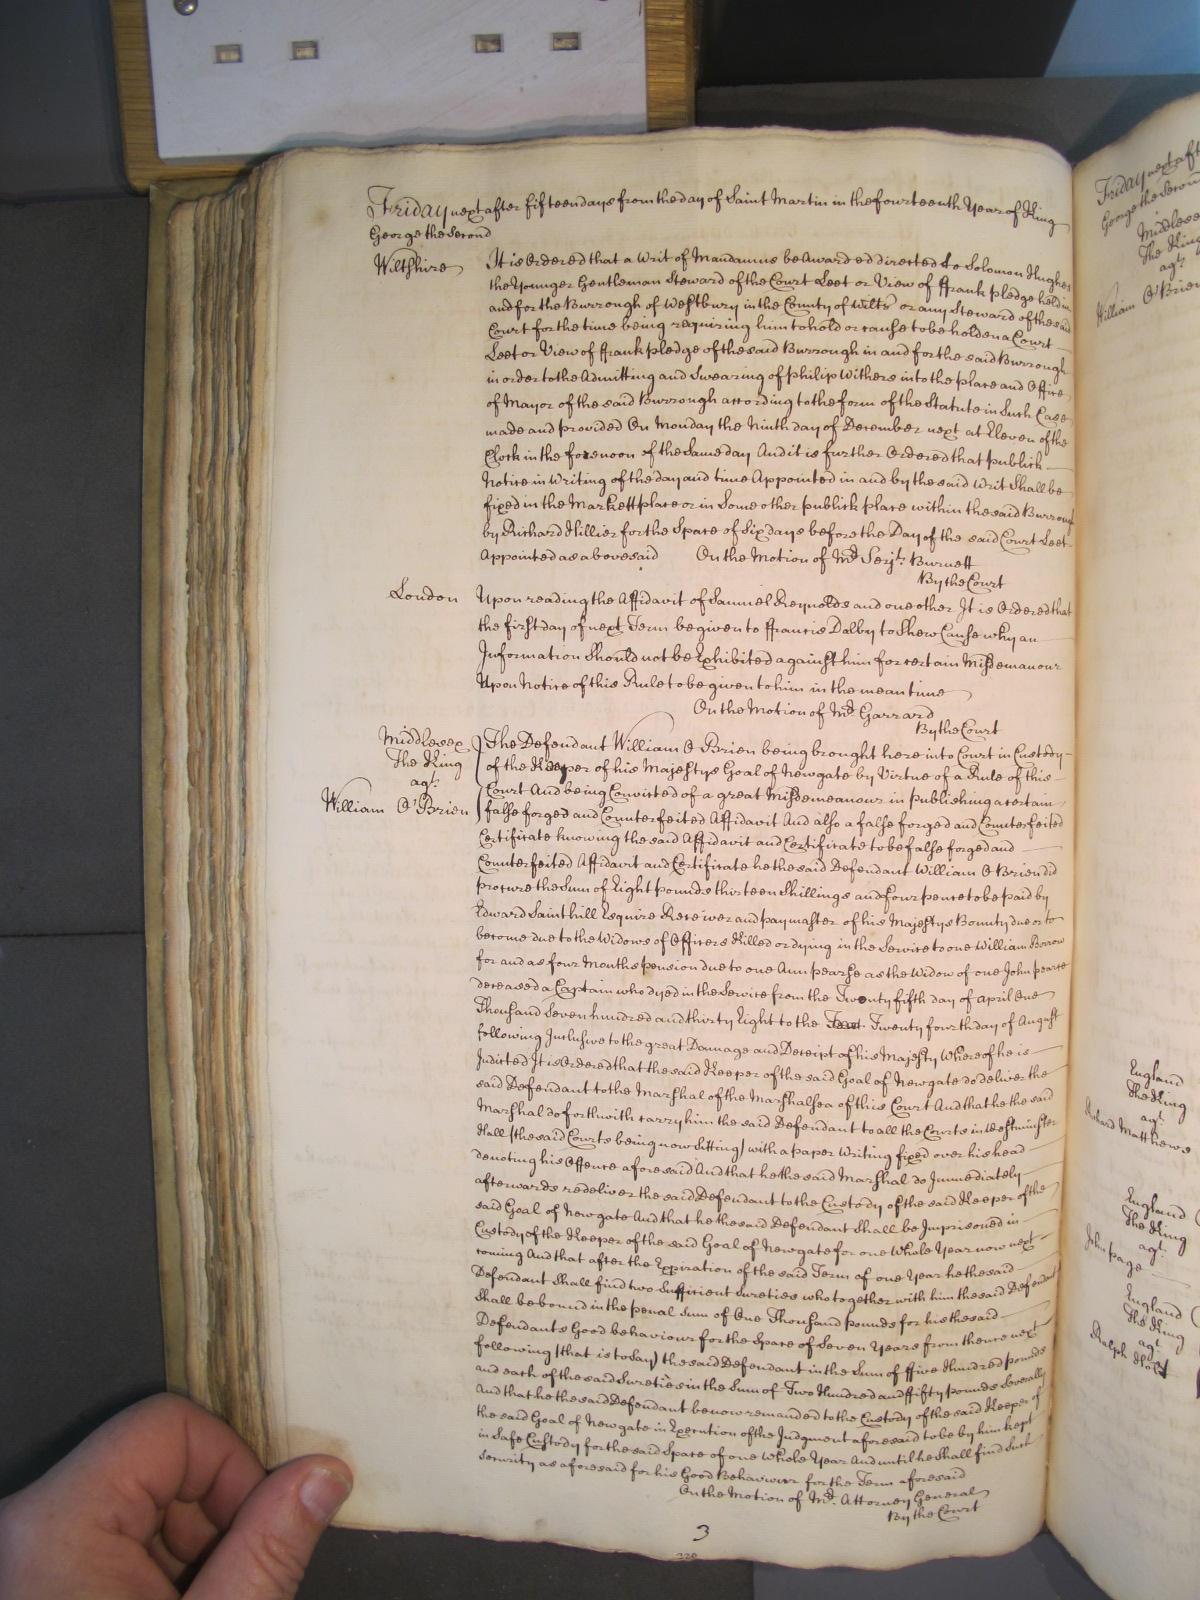 Friday next after fifteen days from the day of Saint Martin in the fourteenth Year of King
George the Second
Wiltshire
It is Ordered that a Writ of Mandamus be Awarded directed to Solomon Hughes
the Younger Gentleman Steward of the Court Leet or View of ffrank pledge held in
and for the Burrough of Westbury in the County of Wilts or any Steward of the said
Court for the time being requiring him to hold or cause to be holden a Court
Leet or View of ffrank pledge of the said Burrough in and for the said Burrough
in order to the Admitting and Swearing of Philip Withers into the place and Office
of Mayor of the said Burrough according to the form of the Statute in Such Case
made and provided On Monday the Ninth day of December next at Eleven of the
Clock in the forenoon of the Same day And it is further Ordered that publick
Notice in Writing of the day and time Appointed in and by the said Writ Shall be
fixed in the Markett place or in Some other publick place within the said Burrough
by Richard Hillier for the Space of Six days before the Day of the said Court Leet
Appointed as abovesaid On the Motion of Mr Serjt. Burnett
By the Court
London
Upon reading the Affidavit of Samuel Reynolds and one other It is Ordered that
the first day of next Term be given to ffrancis Dalby to Shew Cause why an
Information Should not be Exhibited against him for certain Misdemeanour
Upon Notice of this Rule to be given to him in the mean time
On the Motion of Mr Garrard
By the Court
Middlesex
The King
agt.
William O'Brien
The Defendant William O Brien being brought here into Court in Custody
of the Keeper of his Majestys Goal of Newgate by Virtue of a Rule of this
Court And being Convicted of a great Misdemeanour in publishing a certain
false forged and Counterfeited Affidavit And also a false forged and Counterfeited
Certificate knowing the said Affidavit and Certificate to be false forged and
Counterfeited Affidavit and Certificate he the said Defendant William O Brien did
procure the Sum of Eight pounds thirteen Shillings and four pence to be paid by
Edward Sainthill Esquire Receiver and paymaster of his Majestys Bounty due or to
become due to the Widows of Officers Killed or dying in the Service to one William Borrow
for and as four Months pension due to one Ann pearse as the Widow of one John pearse
deceased a Captain who dyed in the Service from the Twenty fifth day of April One
Thousand Seven hundred and thirty Eight to the Twenty fourth day of August
following Inclusive to the great Damage and Deceipt of his Majesty Whereof he is
Indicted It is Ordered that the said Keeper of the said Goal of Newgate do deliver the
said Defendant to the Marshal of the Marshalsea of this Court And that he the said
Marshal do forthwith carry him the said Defendant to all the Courts in Westminster
Hall (the said Courts being now Sitting) with a paper Writing fixed over his head
denoting his Offence aforesaid And that he the said Marshal do Immediately
afterwards redeliver the said Defendant to the Custody of the said Keeper of the
said Goal of Newgate And that he the said Defendant Shall be Imprisoned in
Custody of the Keeper of the said Goal of Newgate for one Whole Year now next
coming And that after the Expiration of the said Term of one Year he the said
Defendant Shall find two Sufficient Sureties who together with him the said Defendant
Shall be bound in the penal Sum of One Thousand pounds for his the said
Defendants Good behaviour for the Space of Seven Years from thence next
following (that is to say) the said Defendant in the Sum of ffive Hundred pounds
and each of the said Sureties in the Sum of Two Hundred and ffifty pounds Severally
And that he the said Defendant be now remanded to the Custody of the said Keeper of
the said Goal of Newgate in Execution of the Judgment aforesaid to be by him kept
in Safe Custody for the said Space of one Whole Year And until he Shall find Such
Security as aforesaid for his Good Behaviour for the Term aforesaid
On the Motion of Mr. Attorney General
By the Court
3
220
Friday next aft
George the Second
Middlesex
The King
agt.
William O'Brien
England
The King
agt.
Richard Matthews
England
The King
agt.
John Page
England
The King
agt.
Ralph Holt